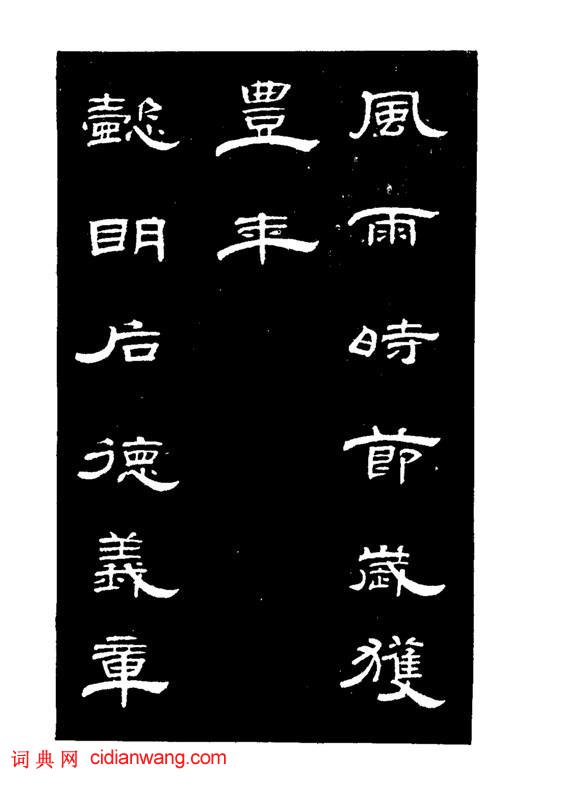 風雨時節歲獲
豊年
懿明后德義章
词典网 cidianwang.com